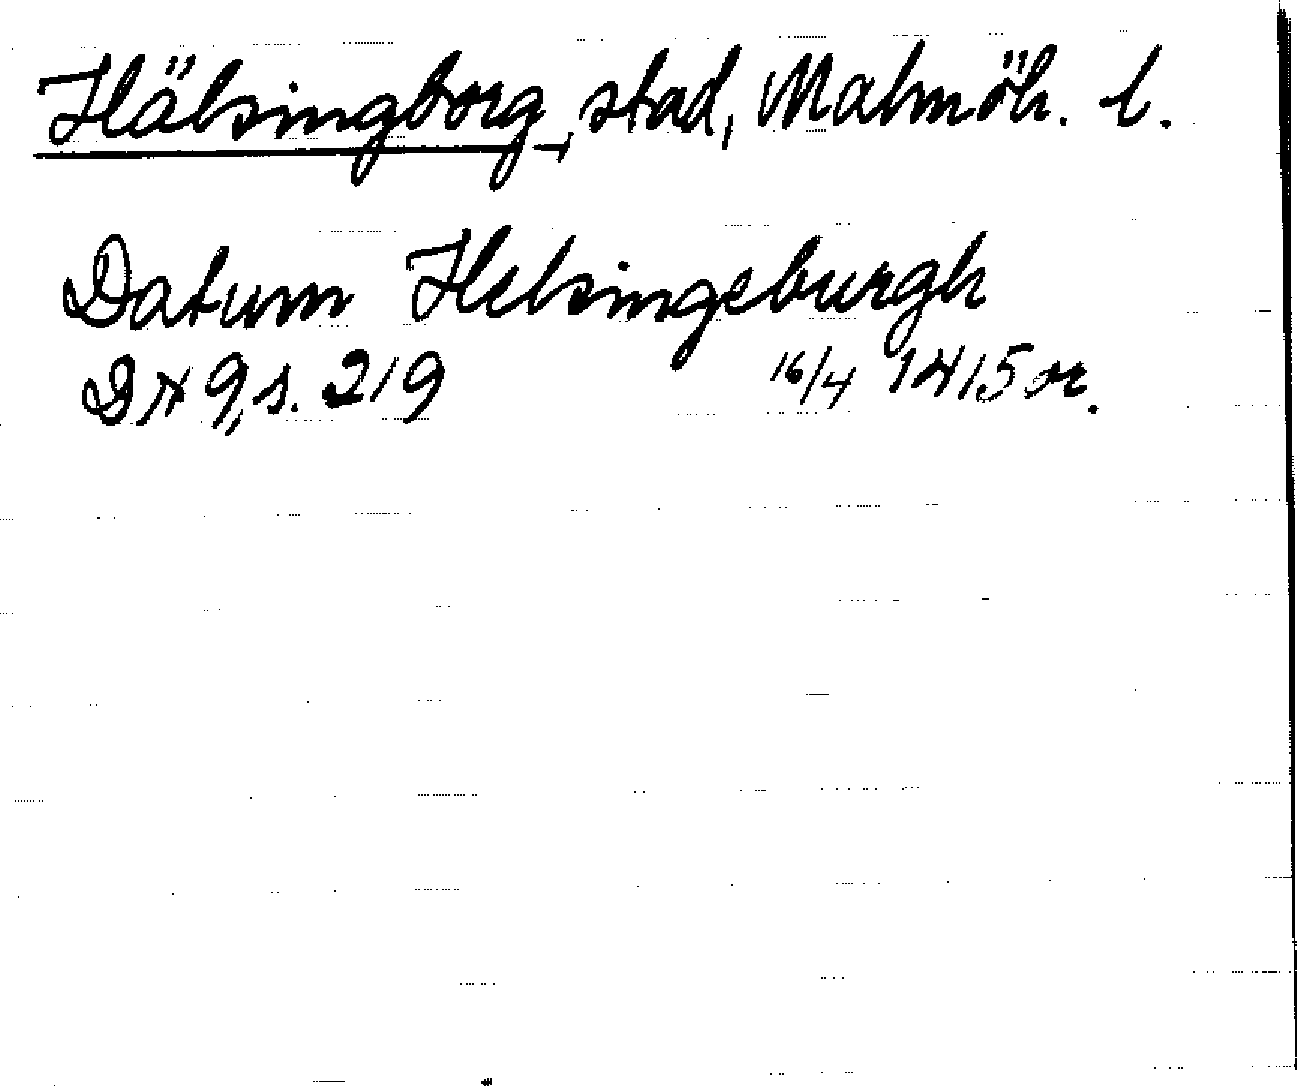 Hälsingborg, stad, Malmöh. l.
Datum Helsingeburgh
DN 9, s. 219 16/4 1415 or.